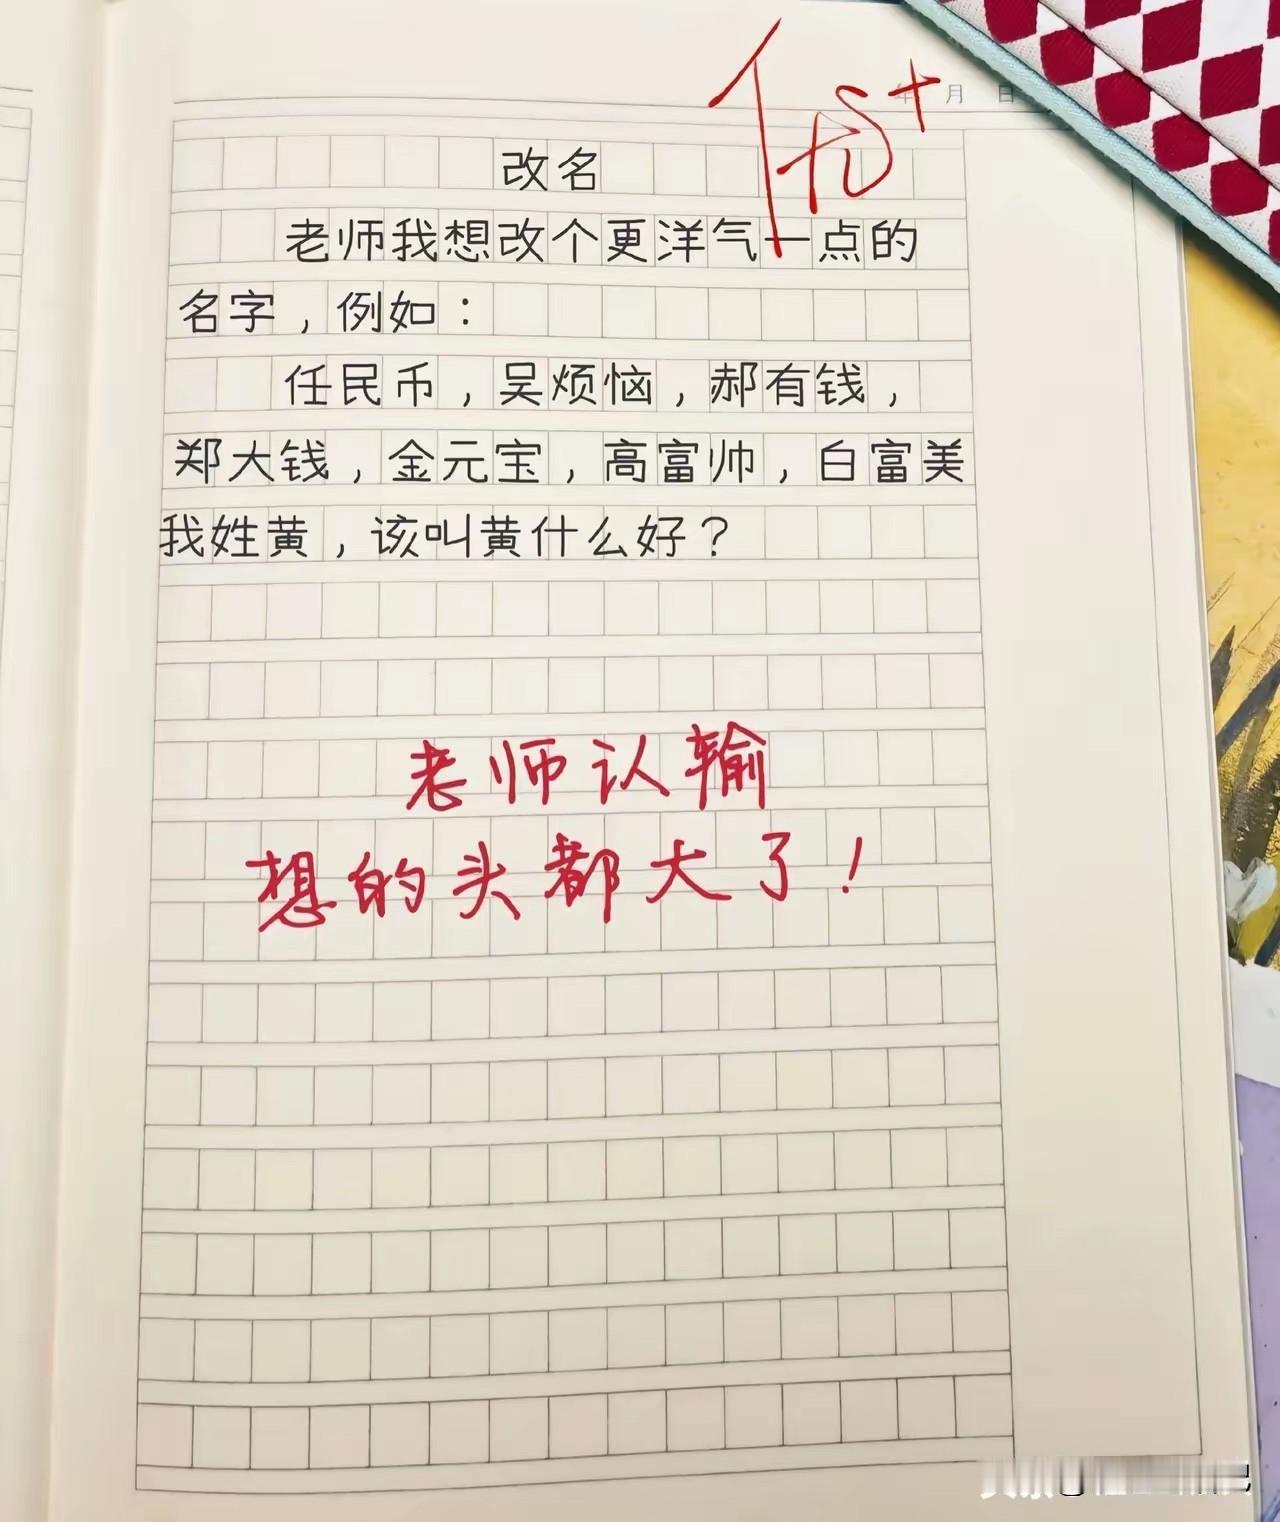 优+
年 月 日
改名
老师我想改个更洋气一点的
名字，例如：
任民币，吴烦恼，郝有钱，
郑大钱，金元宝，高富帅，白富美
我姓黄，该叫黄什么好？
老师认输
想的头都大了！